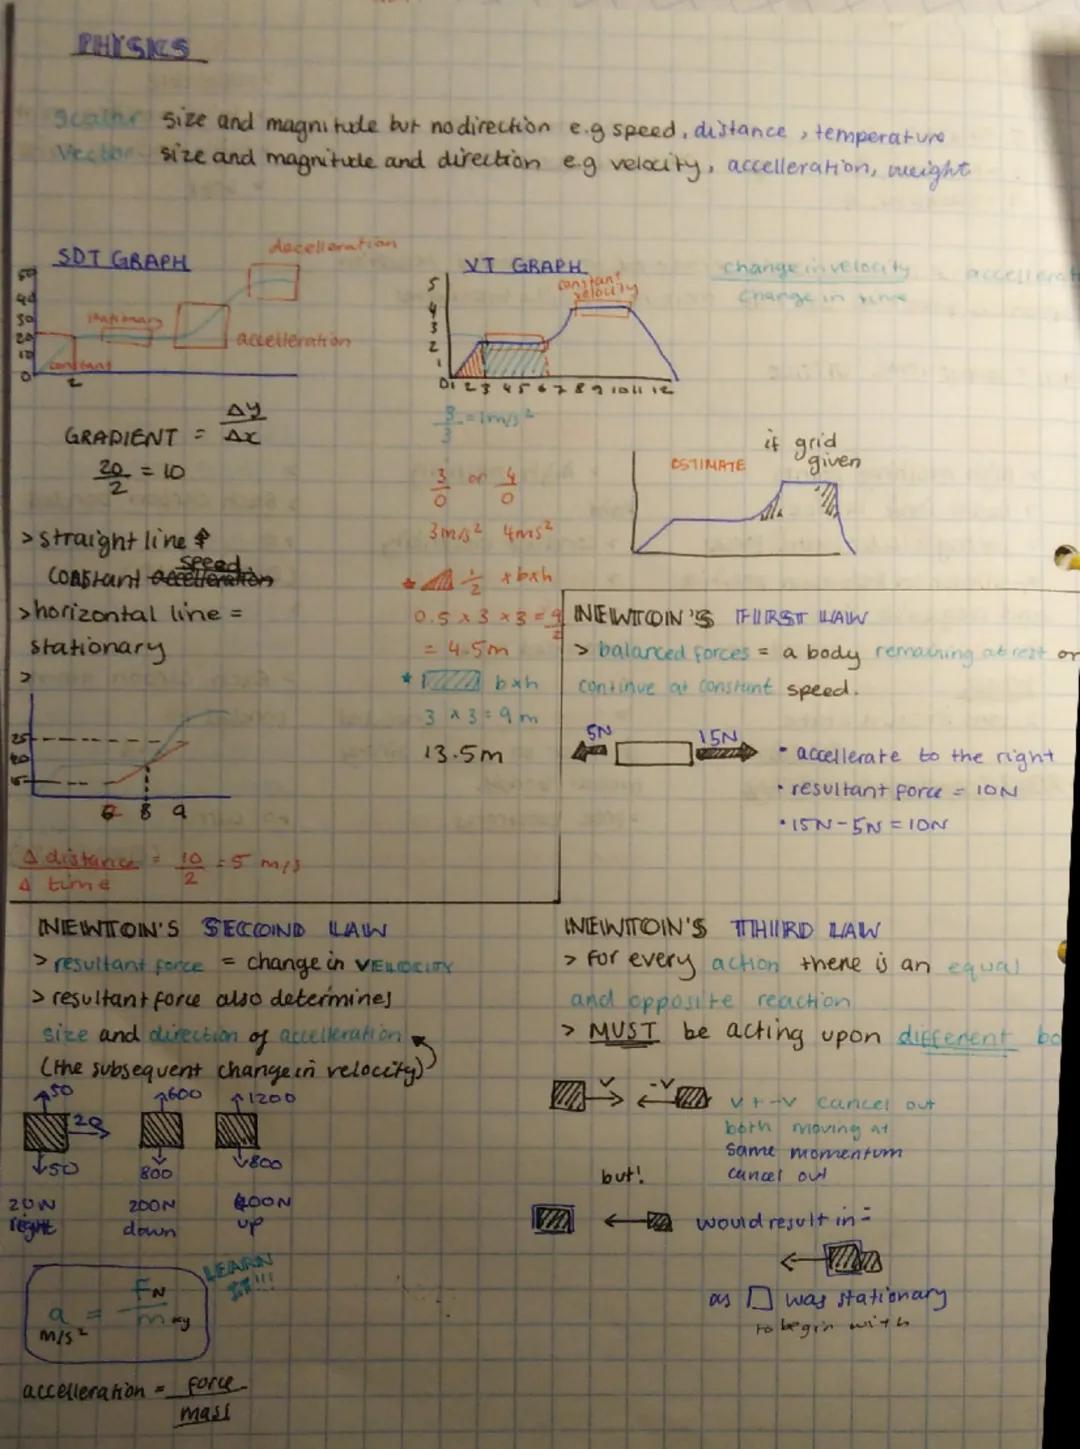 PHYSICS
Scalar size and magnitude but no direction e.g speed, distance, temperature
Vector size and magnitude and direction e.g velocity, accelleration, weight
SDT GRAPH
decelleration
50
40
30
20
10
0
stationary
accelleration
constant
2
VT GRAPH
constant velocity
5
4
3
2
1
0 1 2 3 4 5 6 7 8 9 10 11 12
change in velocity
change in time
= accellerat
GRADIENT = Δy
Δx
20 = 10
2
3 = 1m/s²
3
3 or 4
0 0
3m/s² 4ms²
ESTIMATE
if grid given
> straight line
constant speed
accelleration
> horizontal line =
stationary
>
1 x b x h
2
0.5 x 3 x 3 = 9
2
= 4.5m
b x h
3 x 3 = 9m
13.5m
25
8 9
Δ distance = 10 = 5 m/s
Δ time 2
NEWTON'S FIRST LAW
> balanced forces = a body remaining at rest or
continue at constant speed.
5N 15N
• accellerate to the right
• resultant force = 10N
• 15N - 5N = 10N
NEWTON'S SECOND LAW
> resultant force = change in VELOCITY
> resultant force also determines
size and direction of accelleration
(the subsequent change in velocity)
50 600 1200
20
50 800 800
20N right
200N down
400N up
LEARN IT!!!
a = F N
m/s² m kg
accelleration = force
mass
NEWTON'S THIRD LAW
> for every action there is an equal
and opposite reaction
> MUST be acting upon different bo
v -v
v + -v cancel out
both moving at
same momentum
cancel out
but!
would result in =
as was stationary
to begin with